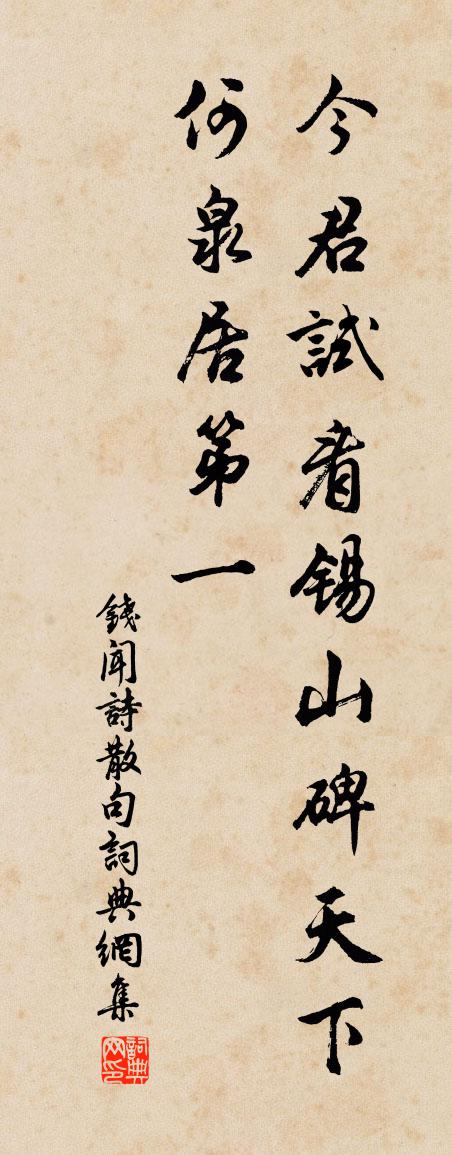 今君試看錫山碑天下
何泉居第一
錢聞詩散句詞典網集
詞典网印